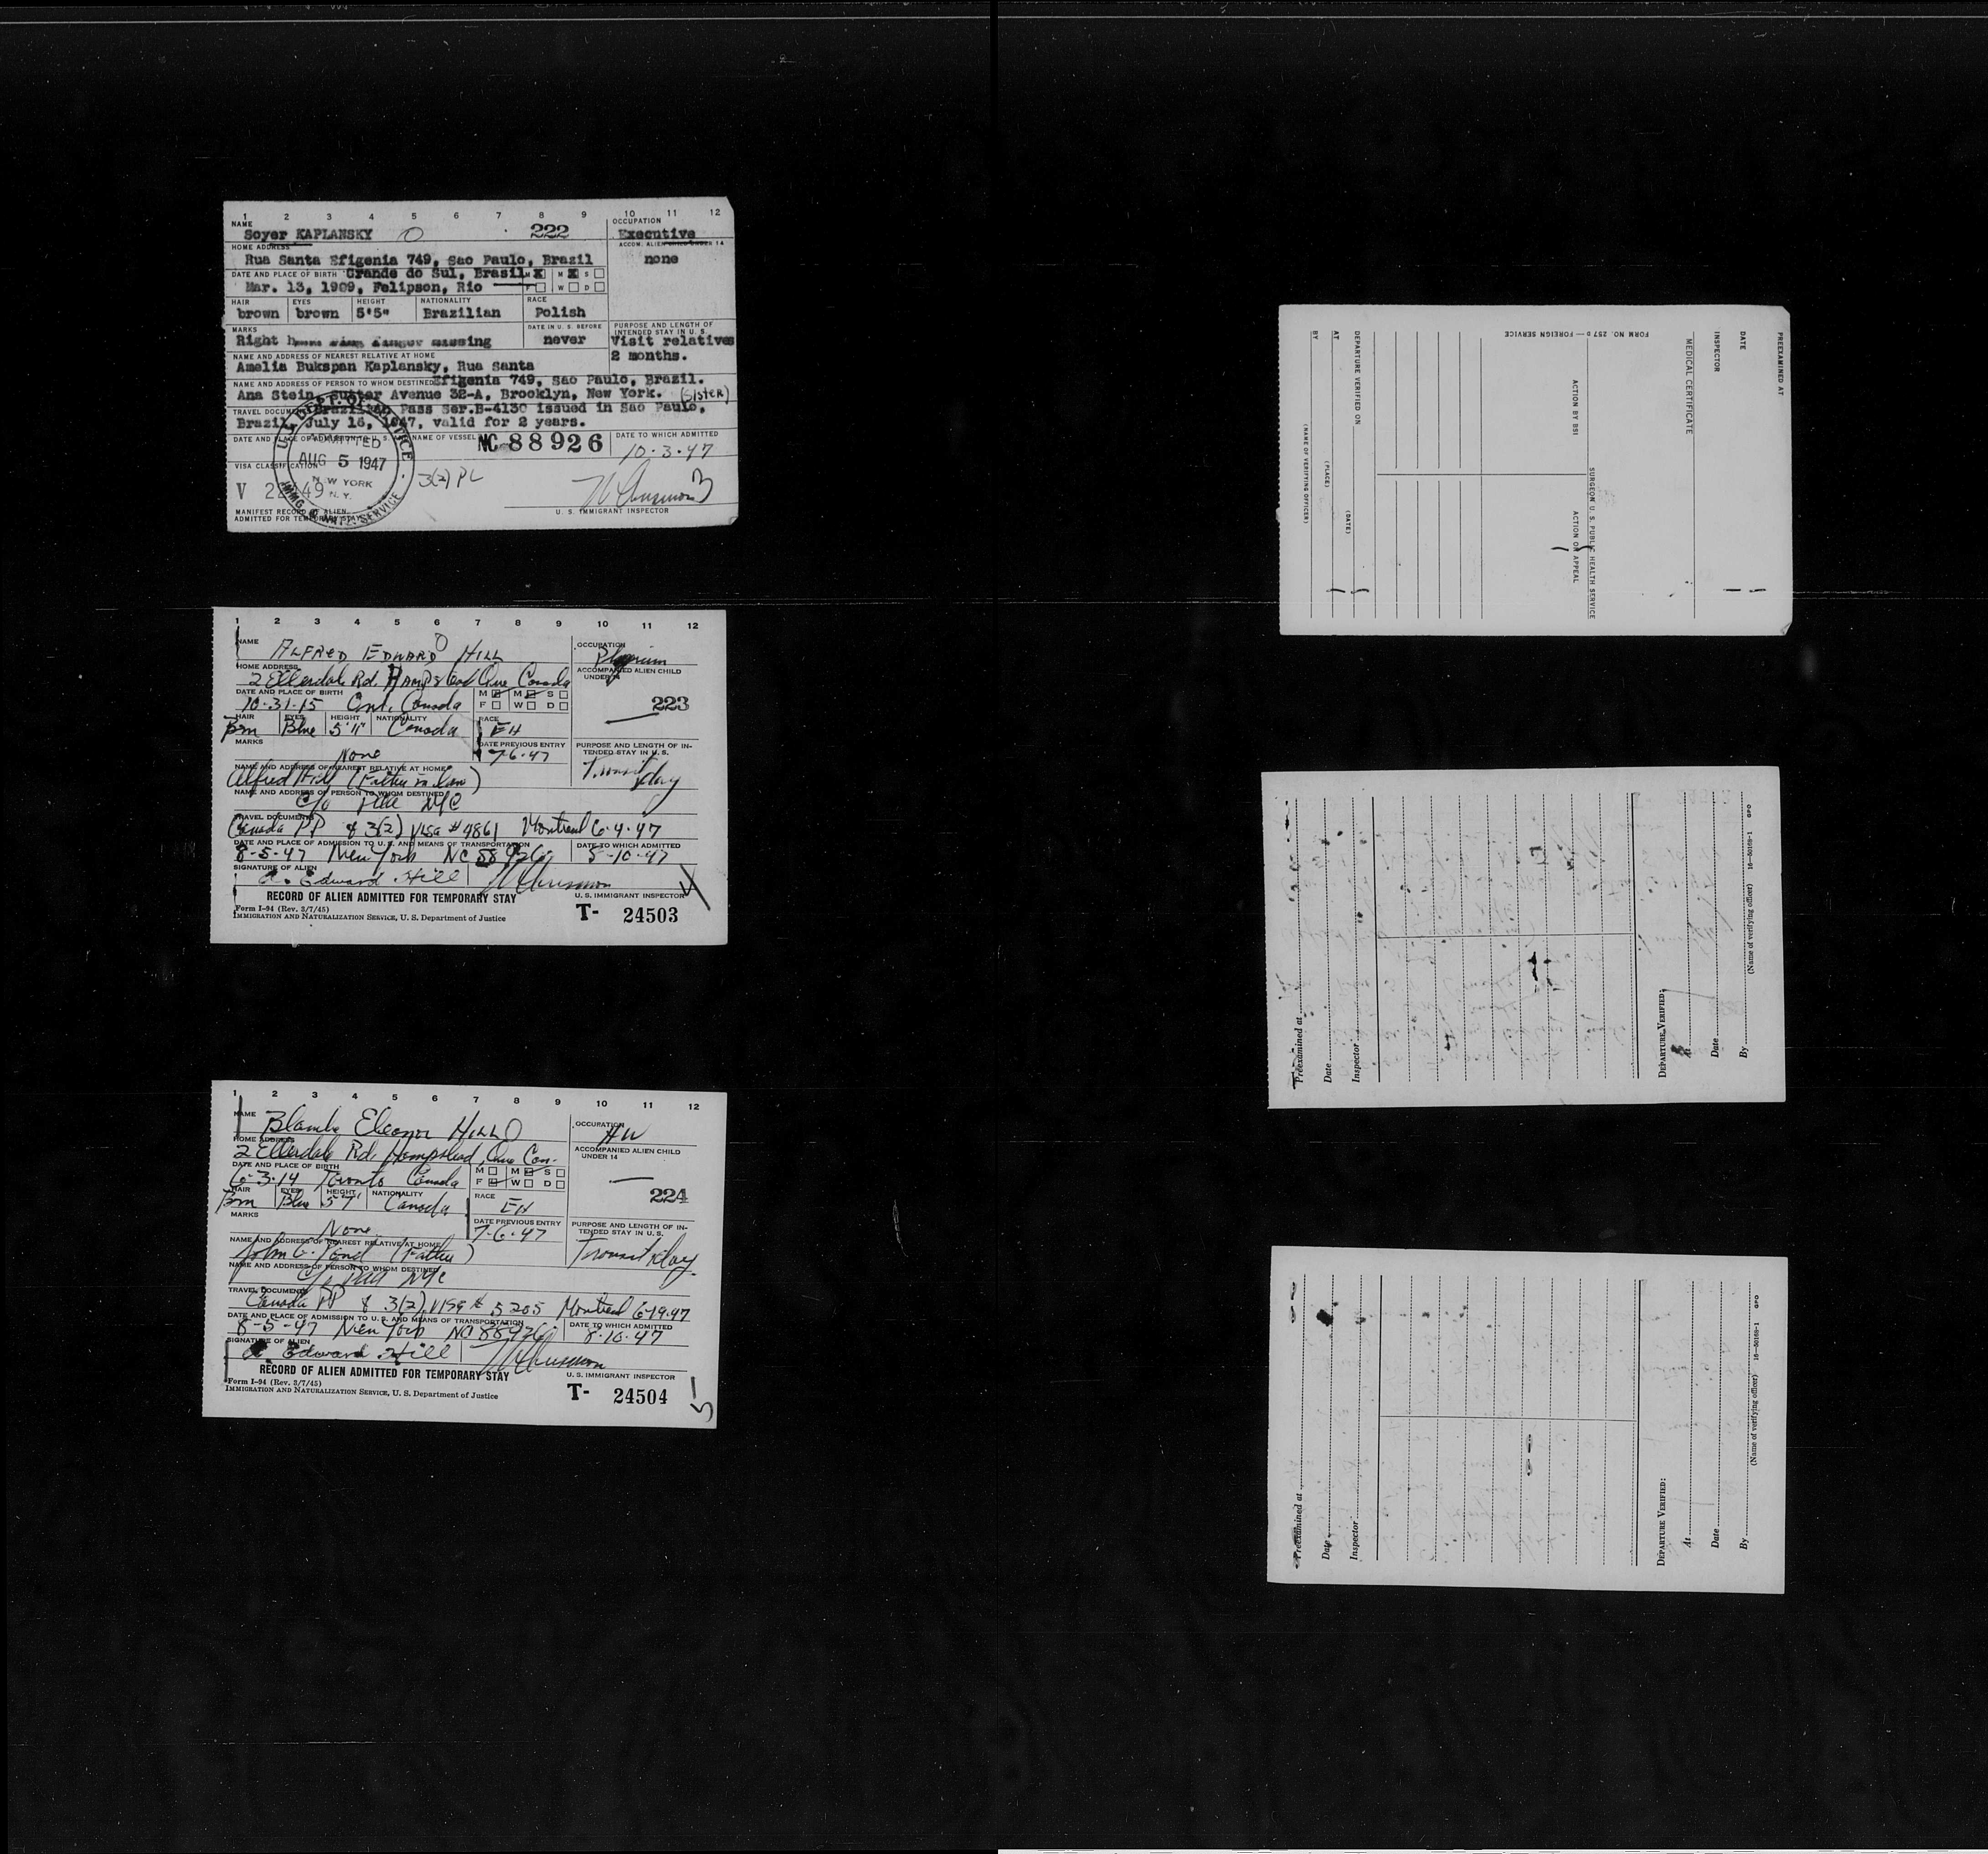 1 2 3 4 5 6 7 8 9 10 11 12
NAME OCCUPATION
Soyer KAPLANSKY O 222 Executive
HOME ADDRESS ACCOM. ALIEN CHILD UNDER 14
Rua Santa Efigenia 749, Sao Paulo, Brazil none
DATE AND PLACE OF BIRTH Grande do Sul, Brasil M X M X S
Mar. 13, 1909, Felipson, Rio F W D
HAIR EYES HEIGHT NATIONALITY RACE
brown brown 5'5" Brazilian Polish
MARKS DATE IN U. S. BEFORE PURPOSE AND LENGTH OF INTENDED STAY IN U. S.
Right missing never Visit relatives
NAME AND ADDRESS OF NEAREST RELATIVE AT HOME 2 months.
Amelia Bukspan Kaplansky, Rua Santa
NAME AND ADDRESS OF PERSON TO WHOM DESTINED Efigenia 749, Sao Paulo, Brazil.
Ana Stein, Sutter Avenue 32-A, Brooklyn, New York. (SISTER)
TRAVEL DOCUMENT Brazilian Pass Ser.B-4130 issued in Sao Paulo,
Brazil, July 16, 1947, valid for 2 years.
DATE AND PLACE OF ADMISSION TO U. S. AND NAME OF VESSEL NC 88926 DATE TO WHICH ADMITTED
10-3-47
U. S. DEPT. OF JUSTICE
ADMITTED
AUG 5 1947
NEW YORK
N. Y.
IMMG. & NATZ. SERVICE
VISA CLASSIFICATION 3(2) PL
V 49
MANIFEST RECORD OF ALIEN U. S. IMMIGRANT INSPECTOR
ADMITTED FOR TEMPORARY STAY
1 2 3 4 5 6 7 8 9 10 11 12
NAME ALFRED EDWARD HILL OCCUPATION
HOME ADDRESS ACCOMPANIED ALIEN CHILD UNDER 14
2 Ellerdale Rd. Hampstead Que Canada
DATE AND PLACE OF BIRTH M M S
10-31-15 Ont. Canada F W D 223
HAIR EYES HEIGHT NATIONALITY RACE
Brn Blue 5'11" Canada EH
MARKS DATE PREVIOUS ENTRY PURPOSE AND LENGTH OF INTENDED STAY IN U. S.
None 7-6-47
NAME AND ADDRESS OF NEAREST RELATIVE AT HOME Transit day
Alfred Hill (Father in law)
NAME AND ADDRESS OF PERSON TO WHOM DESTINED
c/o NYC
TRAVEL DOCUMENTS
Canada PP & 3(2) Visa #4861 Montreal 6-4-47
DATE AND PLACE OF ADMISSION TO U. S. AND MEANS OF TRANSPORTATION DATE TO WHICH ADMITTED
8-5-47 New York NC 88926
SIGNATURE OF ALIEN
A. Edward Hill
RECORD OF ALIEN ADMITTED FOR TEMPORARY STAY U. S. IMMIGRANT INSPECTOR
Form I-94 (Rev. 3/7/45) T- 24503
IMMIGRATION AND NATURALIZATION SERVICE, U. S. Department of Justice
1 2 3 4 5 6 7 8 9 10 11 12
NAME Eleanor HILL OCCUPATION HW
HOME ADDRESS ACCOMPANIED ALIEN CHILD UNDER 14
2 Ellerdale Rd. Hampstead, Que Can-
DATE AND PLACE OF BIRTH M M S
6-3-14 Toronto Canada F W D 224
HAIR EYES HEIGHT NATIONALITY RACE
Brn Blue 5'7" Canada EH
MARKS DATE PREVIOUS ENTRY PURPOSE AND LENGTH OF INTENDED STAY IN U. S.
None 7-6-47
NAME AND ADDRESS OF NEAREST RELATIVE AT HOME Transit 1 day
John G. (Father)
NAME AND ADDRESS OF PERSON TO WHOM DESTINED
c/o NYC
TRAVEL DOCUMENTS
Canada PP & 3(2) Visa # 5205 Montreal 6-19-47
DATE AND PLACE OF ADMISSION TO U. S. AND MEANS OF TRANSPORTATION DATE TO WHICH ADMITTED
8-5-47 New York NC 88926 8-10-47
SIGNATURE OF ALIEN
A. Edward Hill
RECORD OF ALIEN ADMITTED FOR TEMPORARY STAY U. S. IMMIGRANT INSPECTOR
Form I-94 (Rev. 3/7/45) T- 24504
IMMIGRATION AND NATURALIZATION SERVICE, U. S. Department of Justice
PREEXAMINED AT
DATE
INSPECTOR
MEDICAL CERTIFICATE
SURGEON U. S. PUBLIC HEALTH SERVICE
ACTION BY BSI ACTION ON APPEAL
DEPARTURE VERIFIED ON
(DATE)
AT
(PLACE)
BY
(NAME OF VERIFYING OFFICER)
FORM NO. 257 D — FOREIGN SERVICE
Preexamined at
Date
Inspector
DEPARTURE VERIFIED:
At
Date
By
(Name of verifying officer) 16—50169-1 GPO
Preexamined at
Date
Inspector
DEPARTURE VERIFIED:
At
Date
By
(Name of verifying officer) 16—50169-1 GPO